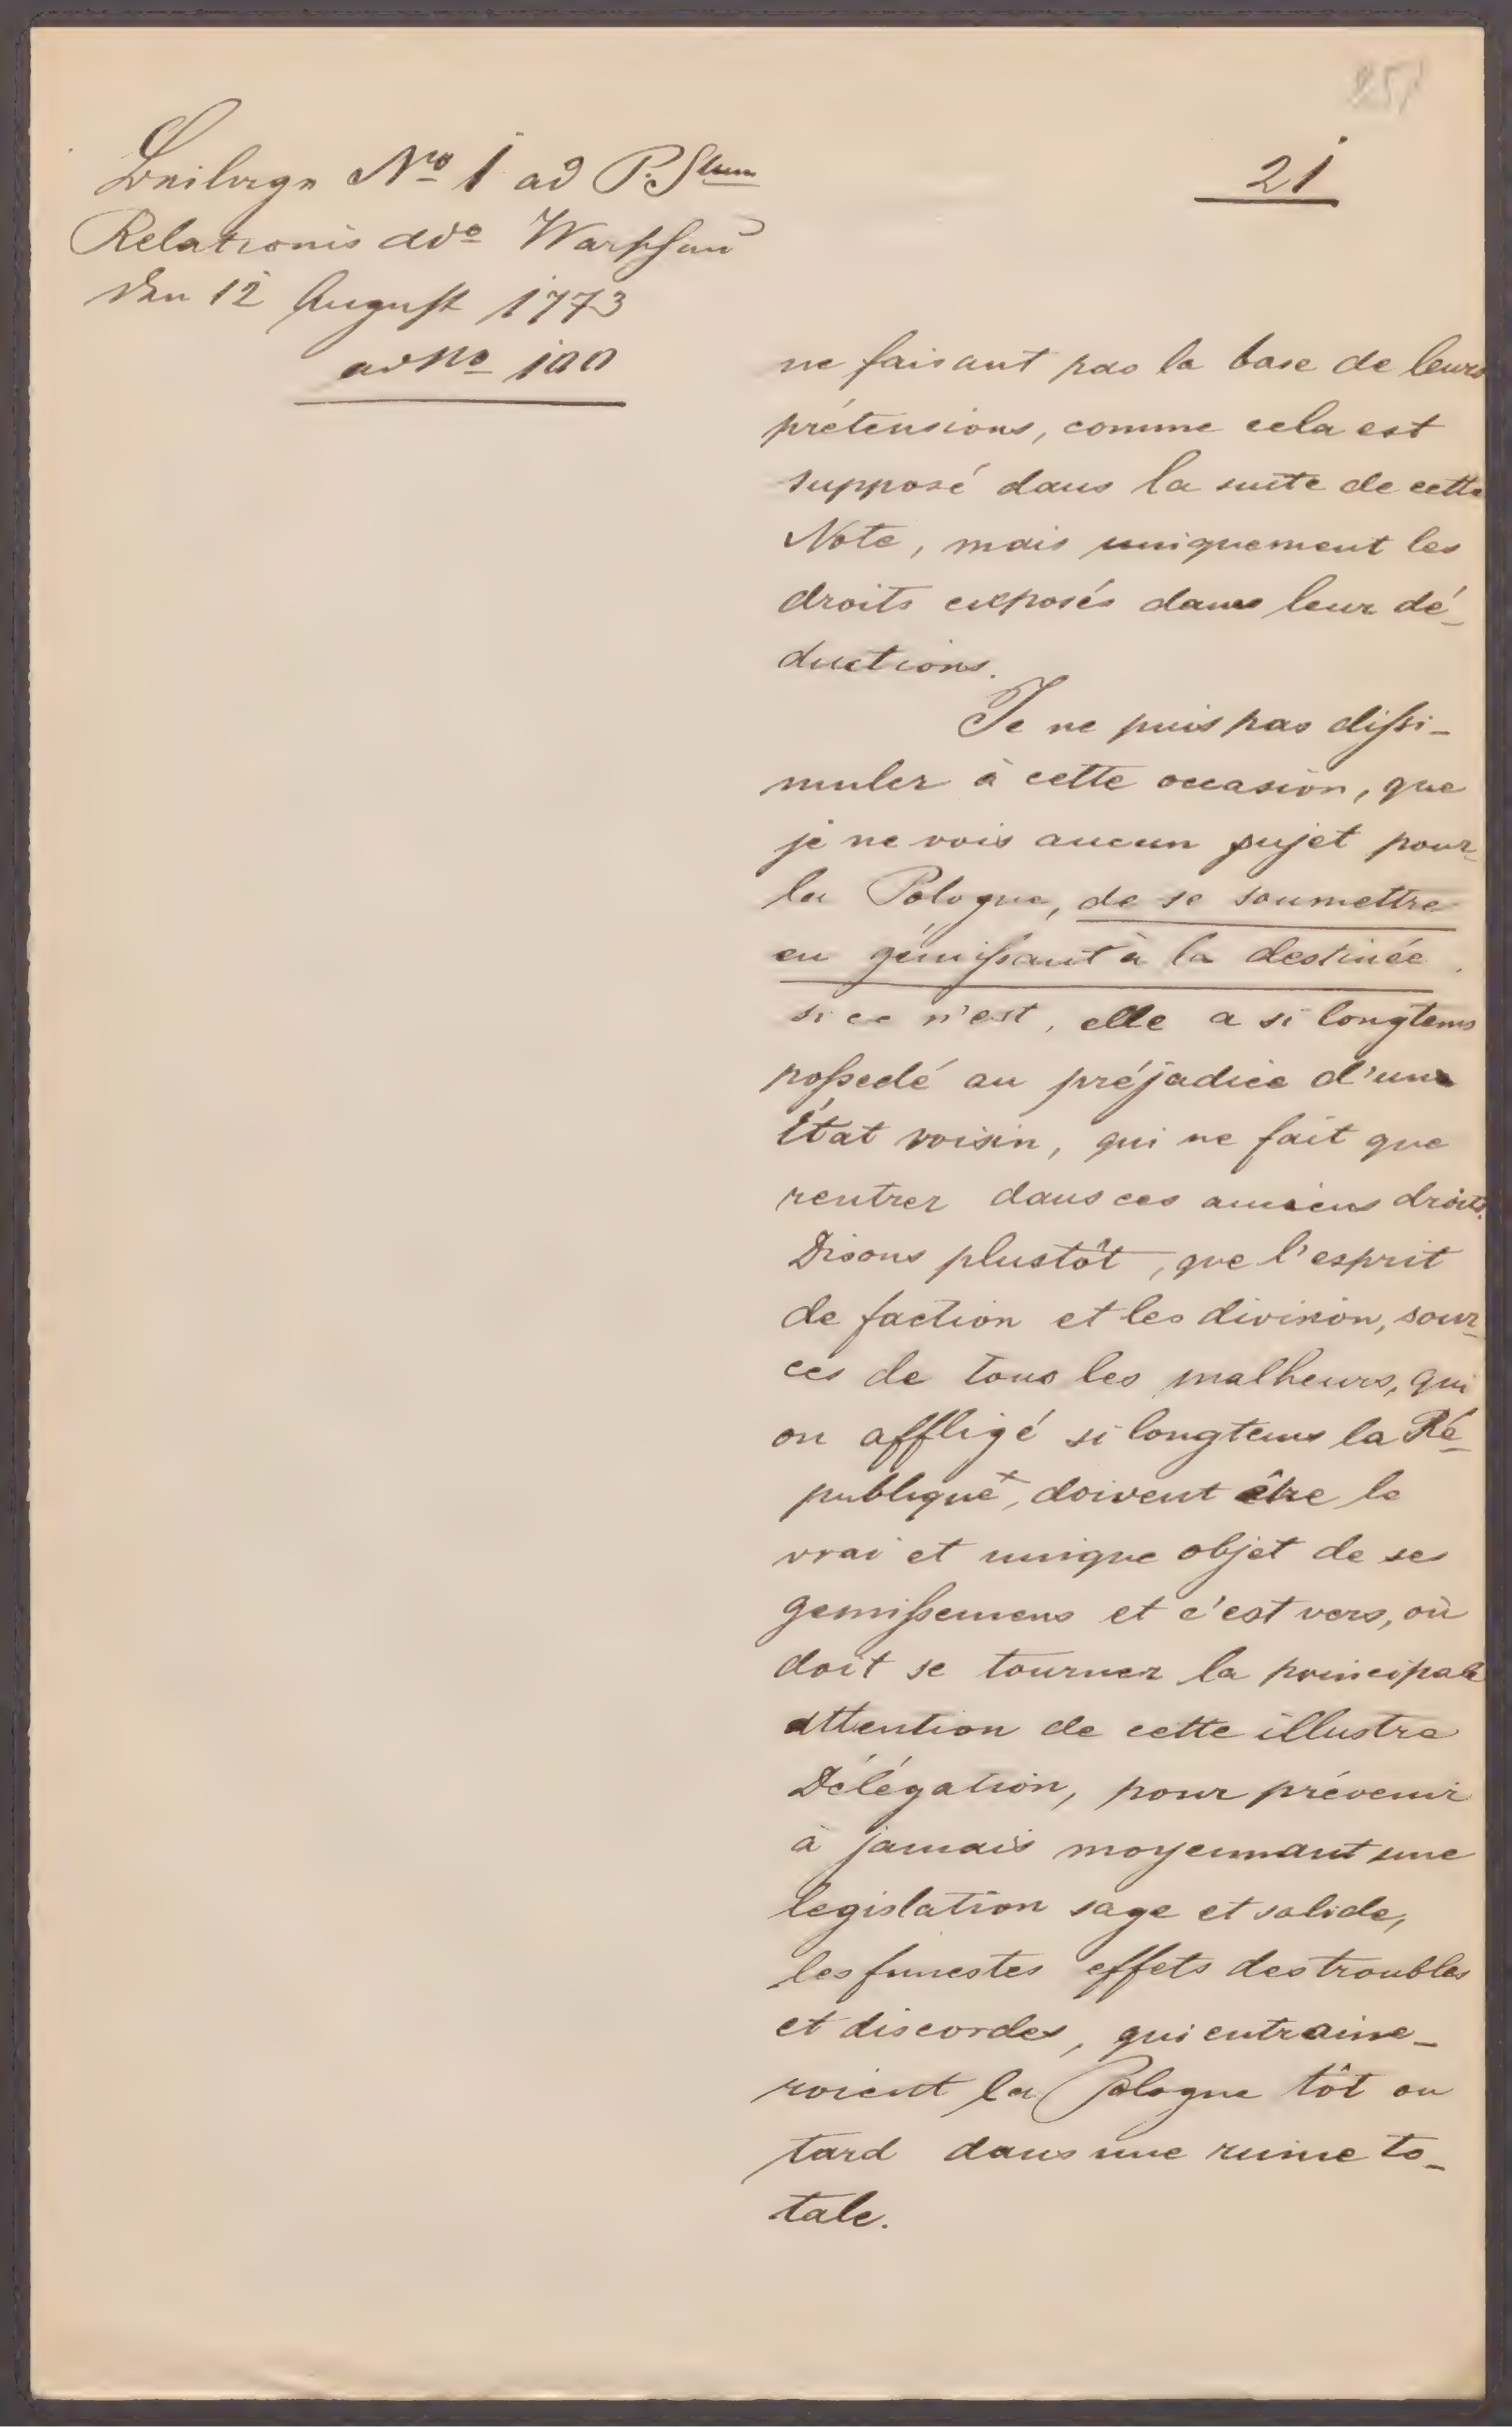 Beilage Nro 1 ad P.Stum
Relationis ddo Warschau
den 12 August 1773
ad No 100
21
ne faisant pas la base de leurs
prétensions, comme cela est
supposé dans la suite de cette
Note, mais uniquement les
droits exposés dans leur dé-
ductions.
Je ne puis pas dissi-
muler à cette occasion, que
je ne vois aucun sujet pour
la Pologne, de se soumettre
en gémissant à la destinée,
si ce n'est, elle a si longtems
possedé au préjudice d'une
État voisin, qui ne fait que
rentrer dans ces anciens droits.
Disons plustôt, que l'esprit
de faction et les division, sour-
ces de tous les malheurs, qui
on affligé si longtems la Ré-
publique+, doivent être le
vrai et unique objet de ses
gemissemens et c'est vers, où
doit se tourner la principale
attention de cette illustre
Délégation, pour prévenir
à jamais moyennant une
legislation sage et solide,
les funestes effets des troubles
et discordes, qui entraine-
roient la Pologne tôt ou
tard dans une ruine to-
tale.